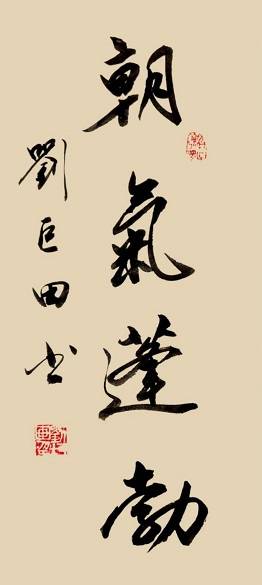 朝氣蓬勃
劉巨田书